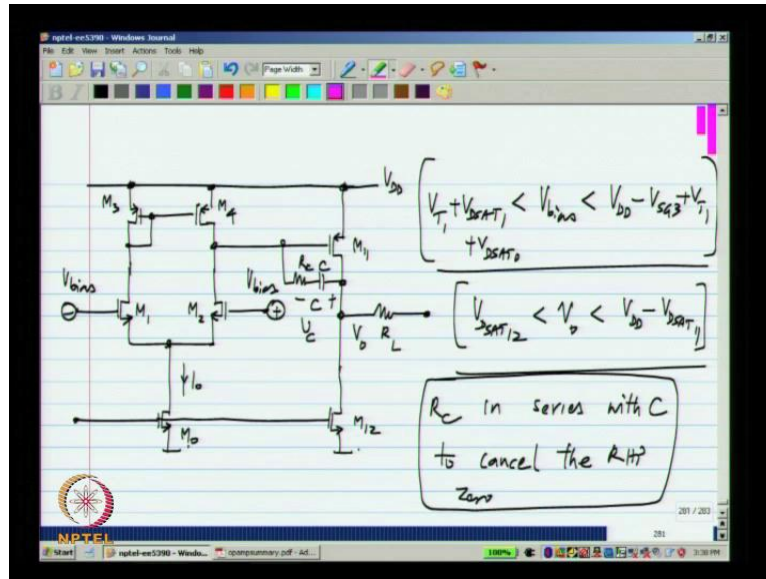 nptel-ee5390 - Windows Journal
File Edit View Insert Actions Tools Help
Page Width
V_DD
M3
M4
M11
R_C C
V_bias
V_bias
M1
M2
- C +
V_C
V_o R_L
I_0
M0
M12
V_T1 + V_DSAT1 < V_bias < V_DD - V_SG3 + V_T1
+ V_DSAT0
V_DSAT12 < V_o < V_DD - V_DSAT11
R_C in series with C
to cancel the RHP
zero
281 / 283
281
NPTEL
Start nptel-ee5390 - Windo... opampsummary.pdf - Ad... 100% 3:38 PM